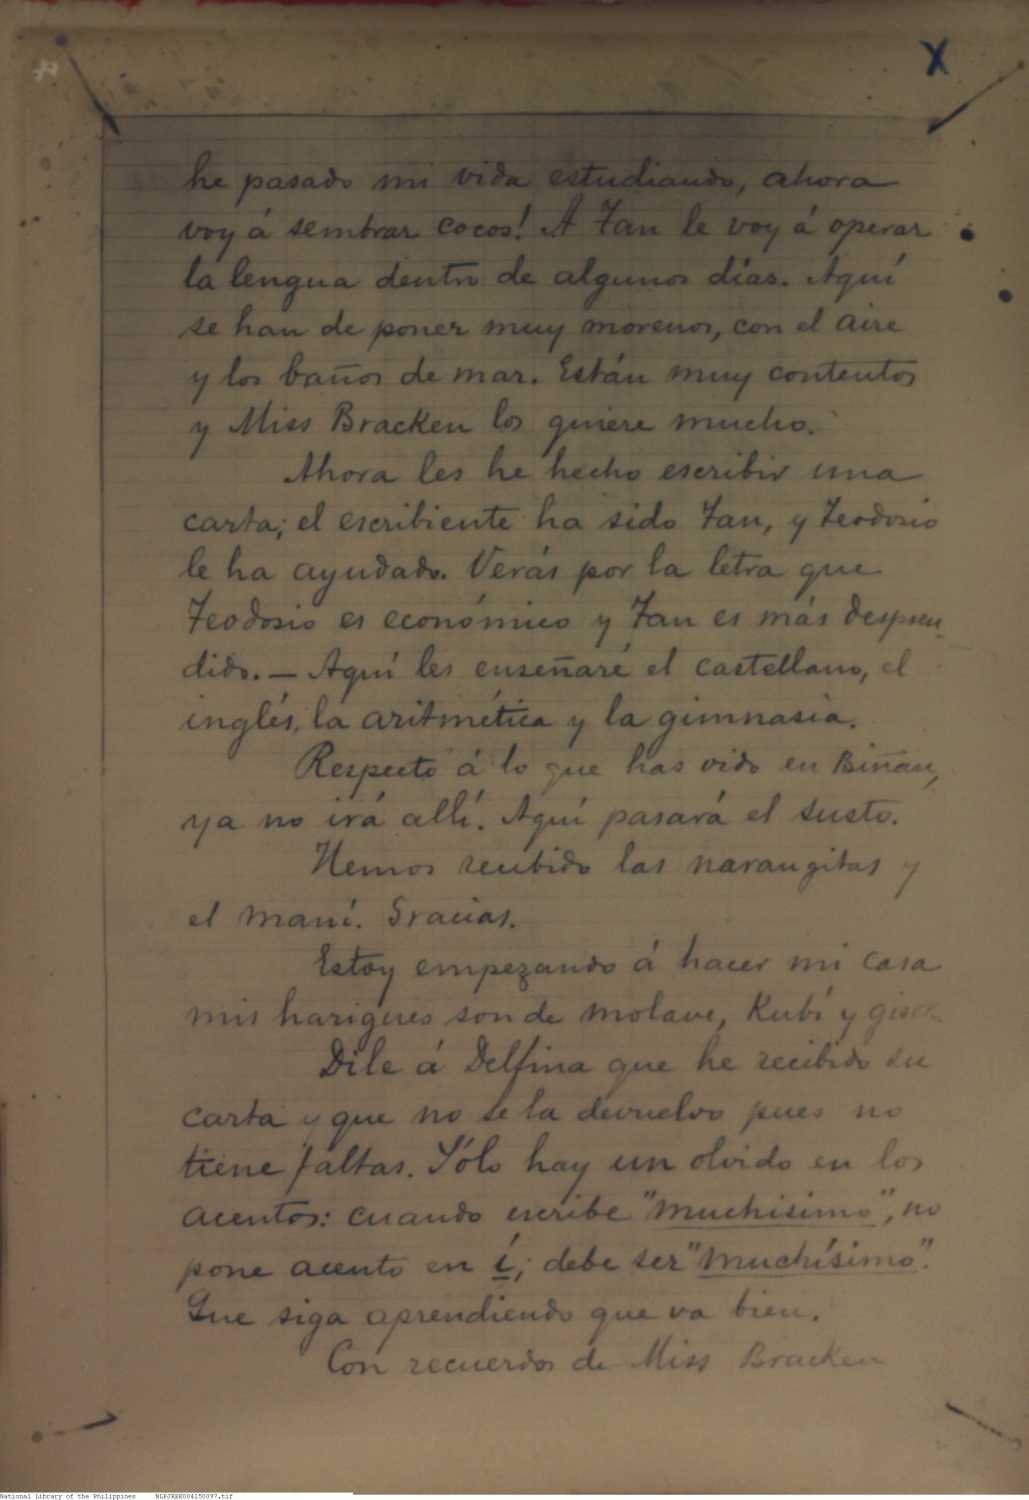 X
he pasado mi vida estudiando, ahora
voy á sembrar cocos! A Tan le voy á operar
la lengua dentro de algunos días. Aquí
se han de poner muy morenos, con el aire
y los baños de mar. Están muy contentos
y Miss Bracken los quiere mucho.
Ahora les he hecho escribir una
carta; el escribiente ha sido Tan, y Teodosio
le ha ayudado. Verás por la letra que
Teodosio es económico y Tan es más despren-
dido. — Aquí les enseñaré el castellano, el
inglés, la aritmética y la gimnasia.
Respecto á lo que has vido en Biñan,
ya no irá allí. Aquí pasará el susto.
Hemos recibido las narangitas y
el maní. Gracias.
Estoy empezando á hacer mi casa
mis harigues son de molave, Kubí y
Dile á Delfina que he recibido su
carta y que no se la devuelvo pues no
tiene faltas. Sólo hay un olvido en los
acentos: cuando escribe "muchisimo", no
pone acento en í; debe ser "muchísimo".
Que siga aprendiendo que va bien.
Con recuerdos de Miss Bracken
National Library of the Philippines NLPJRBH004150097.tif